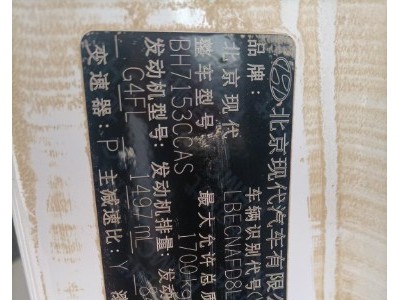 北京现代汽车有限
品牌: 车辆识别代号
北京现代 LBECNAFD8
整车型号: 最大允许总质
BH7153CCAS 1700kg
发动机型号: 发动机排量: 发动
G4FL 1497mL
变速器: P 主减速比: Y